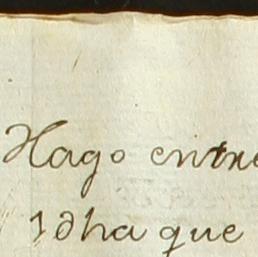 Hago entre
1 dha que